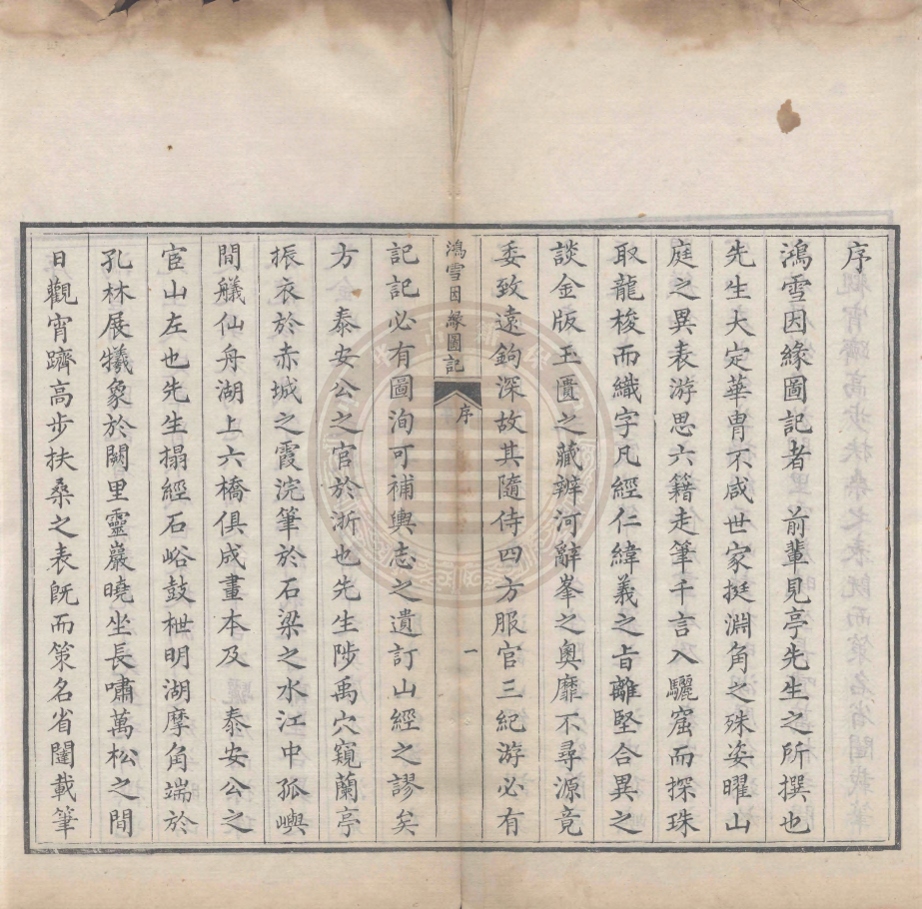 序
鴻雪因緣圖記者　前輩見亭先生之所撰也
先生大定華胄不咸世家挺淵角之殊姿曜山
庭之異表游思六籍走筆千言入驪窟而探珠
取龍梭而織字凡經仁緯義之旨離堅合異之
談金版玉匱之藏辨河辭峯之奧靡不尋源竟
委致遠鉤深故其隨侍四方服官三紀游必有
鴻雪因緣圖記
序
一
記記必有圖洵可補輿志之遺訂山經之謬矣
方　泰安公之官於浙也先生陟禹穴窺蘭亭
振衣於赤城之霞浣筆於石梁之水江中孤嶼
間艤仙舟湖上六橋俱成畫本及　泰安公之
宦山左也先生搨經石峪鼓枻明湖摩角端於
孔林展犧象於闕里靈巖曉坐長嘯萬松之間
日觀宵躋高步扶桑之表旣而策名省闥載筆